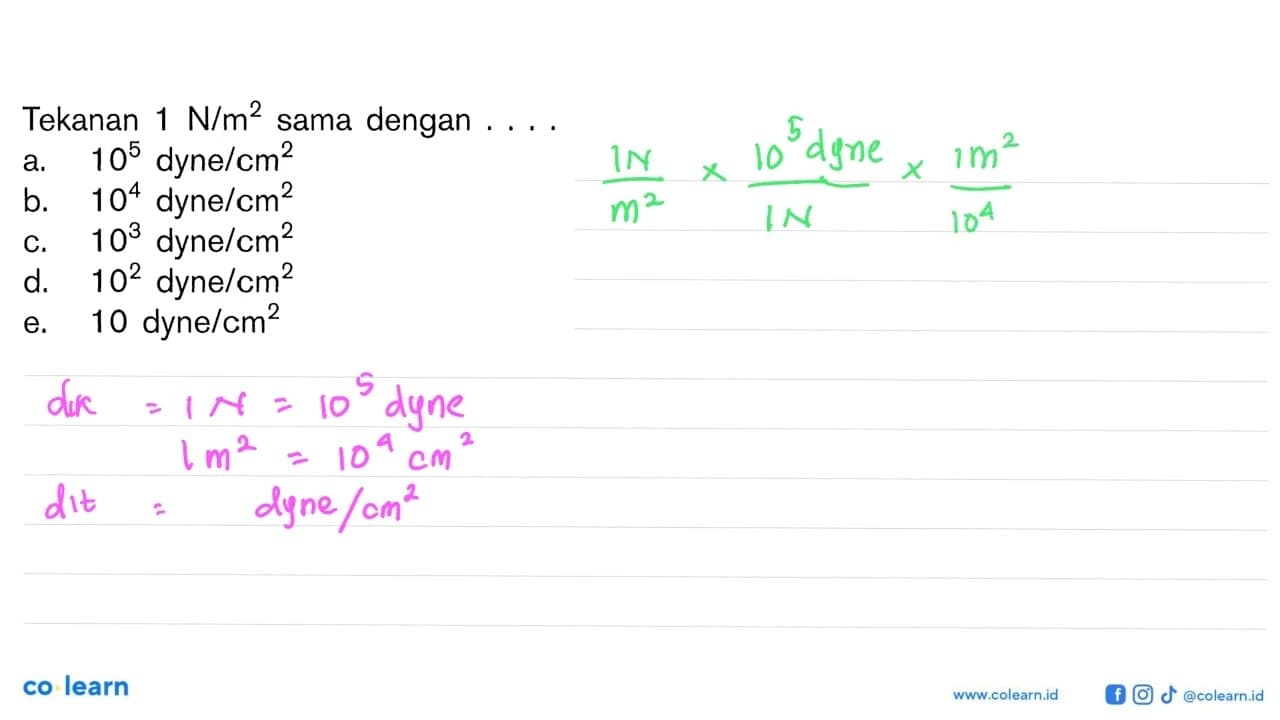 Tekanan 1 N/m² sama dengan . . . .
a. 10⁵ dyne/cm²
b. 10⁴ dyne/cm²
c. 10³ dyne/cm²
d. 10² dyne/cm²
e. 10 dyne/cm²
1N/m² x 10⁵ dyne/1N x 1m²/10⁴
dik = 1 N = 10⁵ dyne
1 m² = 10⁴ cm²
dit = dyne/cm²
co learn
www.colearn.id @colearn.id